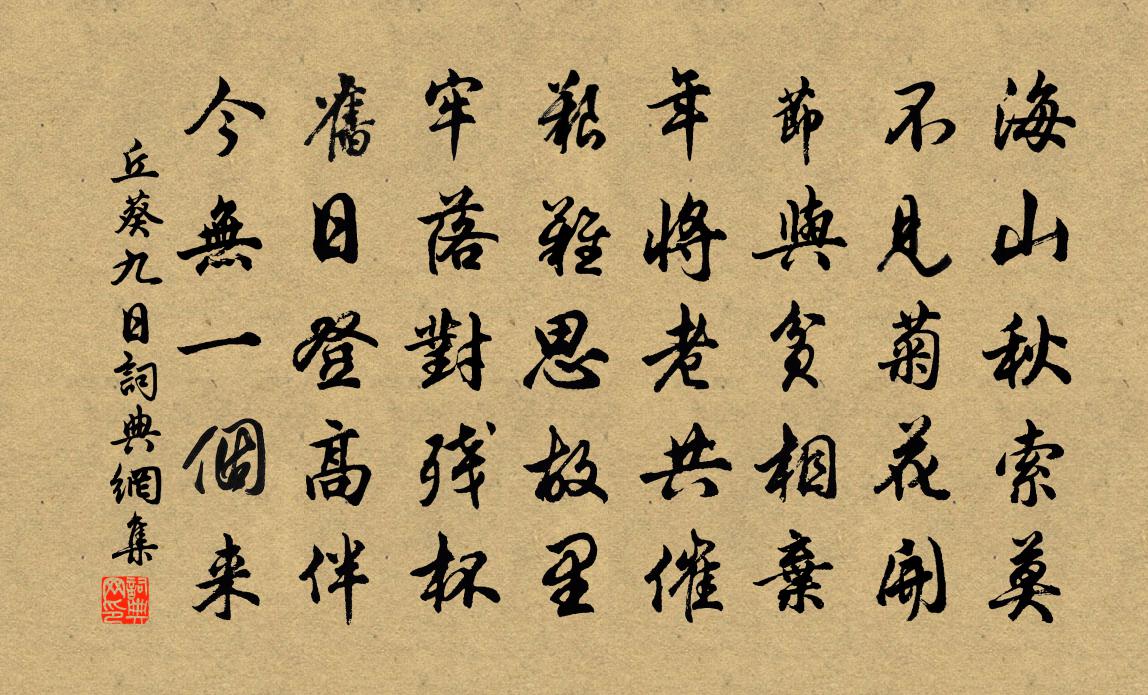 海山秋索莫
不見菊花開
節與貧相棄
年將老共催
艱難思故里
牢落對殘杯
舊日登高伴
今無一個来
丘葵九日詞典網集
詞典网印